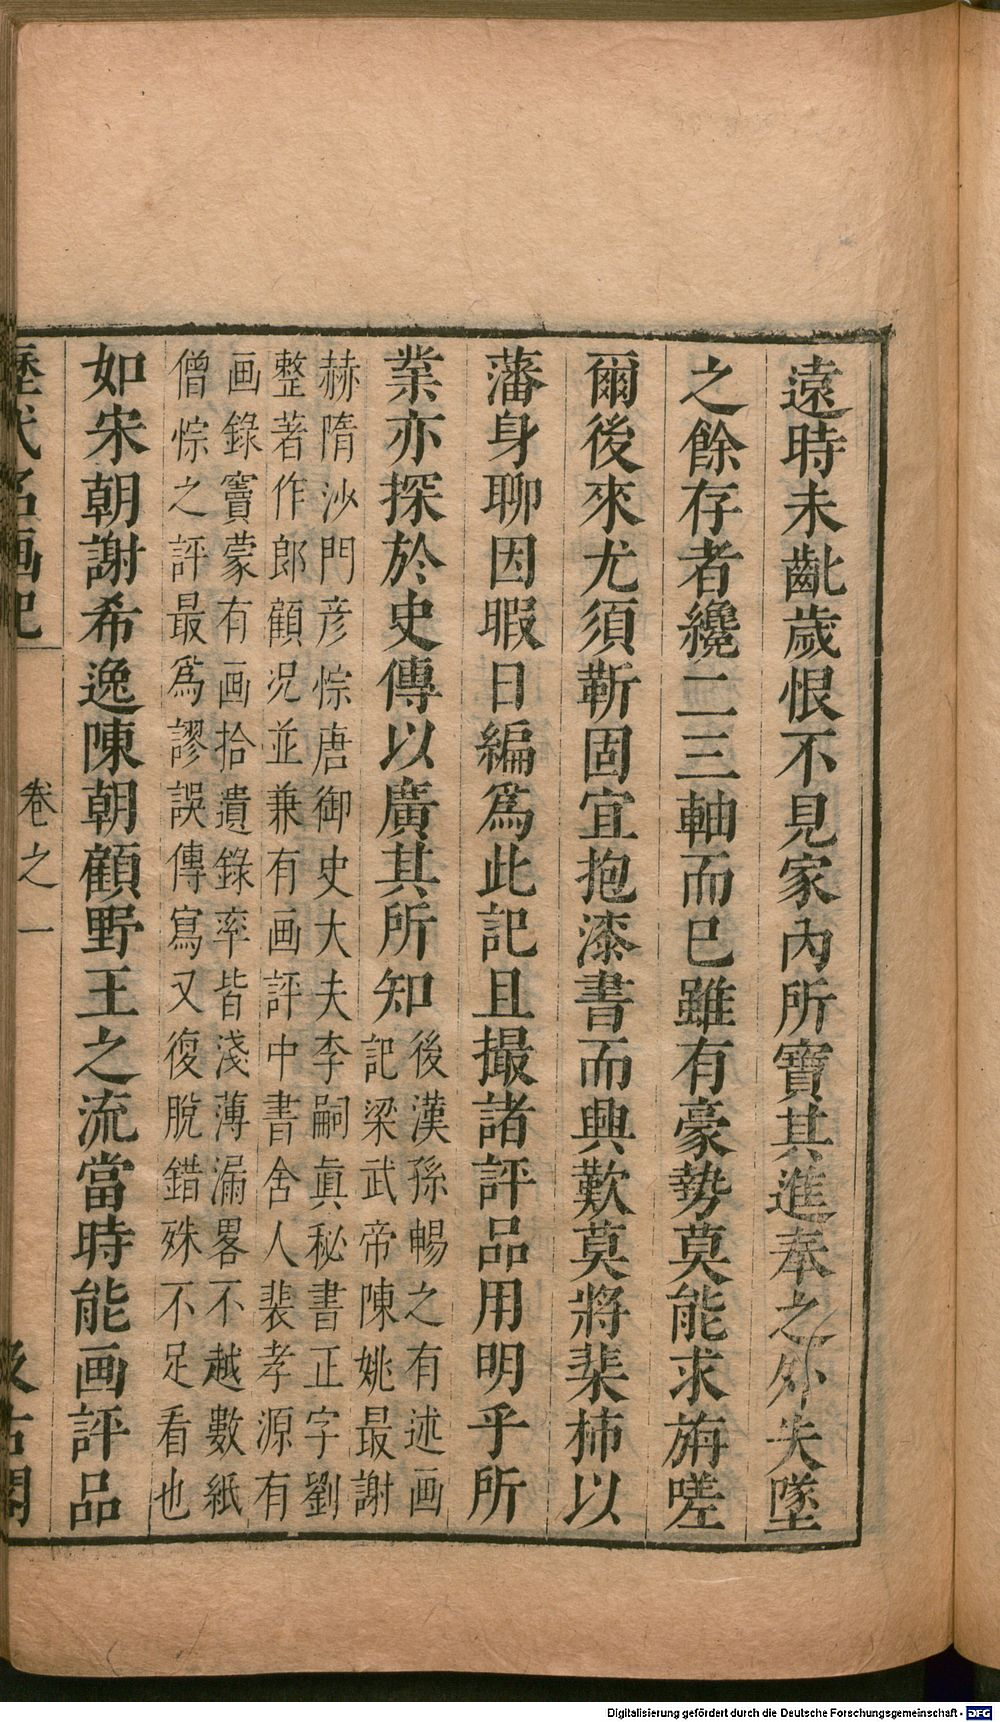 遠時未齔歲恨不見家內所寶其進奉之外失墜
之餘存者纔二三軸而已雖有豪勢莫能求旃嗟
爾後來尤須靳固宜抱漆書而興歎莫將棐柿以
藩身聊因暇日編爲此記且撮諸評品用明乎所
業亦探於史傳以廣其所知
後漢孫暢之有述画
記梁武帝陳姚最謝
赫隋沙門彦悰唐御史大夫李嗣眞秘書正字劉
整著作郎顧况並兼有画評中書舍人裴孝源有
画錄竇蒙有画拾遺錄率皆淺薄漏畧不越數紙
僧悰之評最爲謬誤傳寫又復脫錯殊不足看也
如宋朝謝希逸陳朝顧野王之流當時能画評品
歷代名画記 卷之一 汲古閣
Digitalisierung gefördert durch die Deutsche Forschungsgemeinschaft - DFG